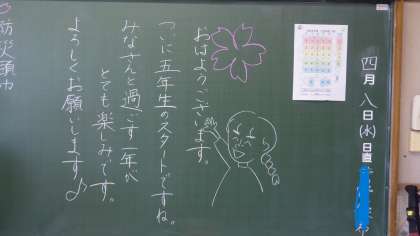 四月八日(水)日直
おはようございます。
ついに五年生のスタートですね。
みなさんと過ごす一年が
とても楽しみです。
よろしくお願いします♪
防災頭巾